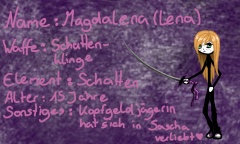 Name: Magdalena (Lena)
Waffe: Schatten-
klinge
Element: Schatten
Alter: 15 Jahre
Sonstiges: Kopfgeldjägerin
hat sich in Sascha
verliebt♥